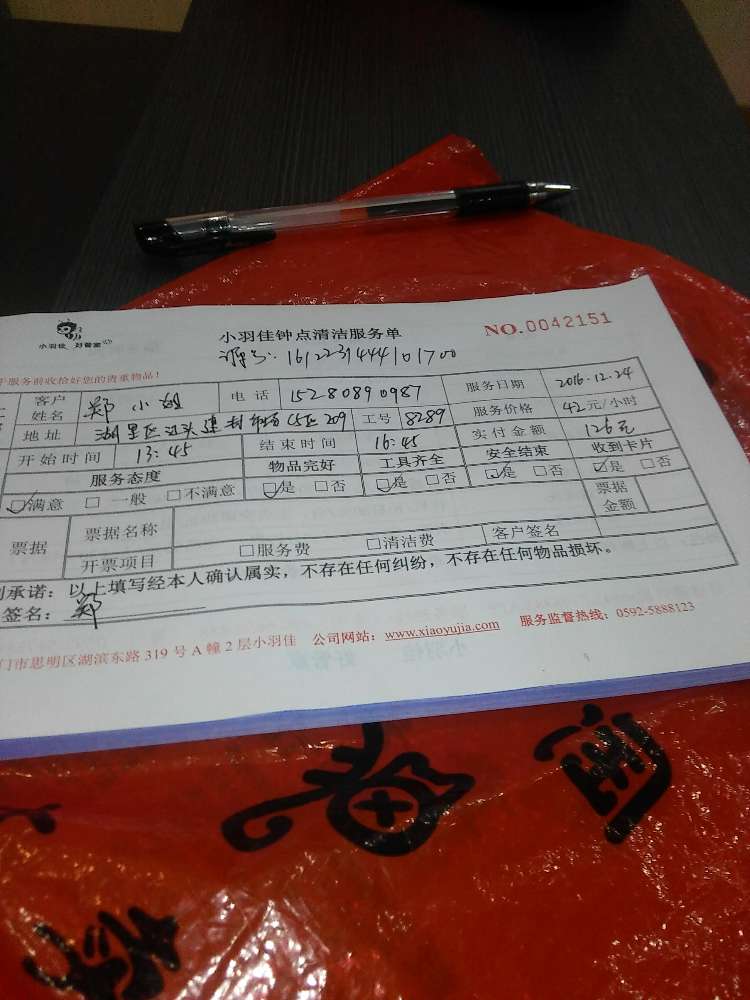 小羽佳 好管家
小羽佳钟点清洁服务单
NO.0042151
服务前收拾好您的贵重物品!
客户姓名 郑小姐 电话 15280890987 服务日期 2016.12.24
地址 湖里区 村 C5区 209 工号 8289 服务价格 42元/小时
开始时间 13:45 结束时间 16:45 实付金额 126元
服务态度 物品完好 工具齐全 安全结束 收到卡片
☑满意 □一般 □不满意 ☑是 □否 ☑是 □否 ☑是 □否 ☑是 □否
票据 票据名称 票据金额
开票项目 □服务费 □清洁费 客户签名
承诺:以上填写经本人确认属实,不存在任何纠纷,不存在任何物品损坏。
签名:郑
门市思明区湖滨东路319号A幢2层小羽佳 公司网站:www.xiaoyujia.com 服务监督热线:0592-5888123